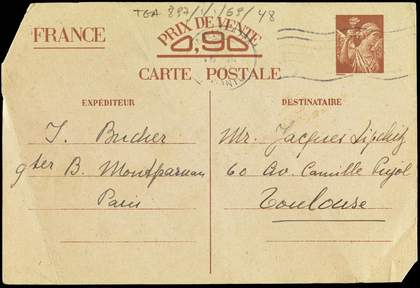 TGA 897/1/1/69/48
FRANCE
PRIX DE VENTE
0,90
CARTE POSTALE
EXPÉDITEUR
J. Bucher
9ter B. Montparnasse
Paris
DESTINATAIRE
Mr. Jacques Lipchitz
60 Av. Camille Pujol
Toulouse